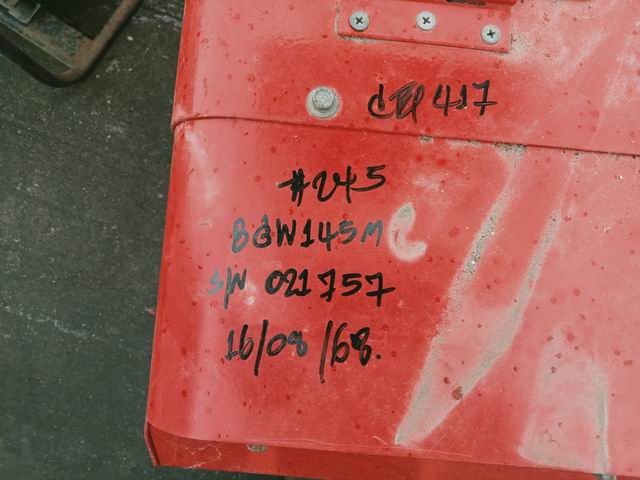 417
#245
BGW145M
S/N 021757
16/08/68.